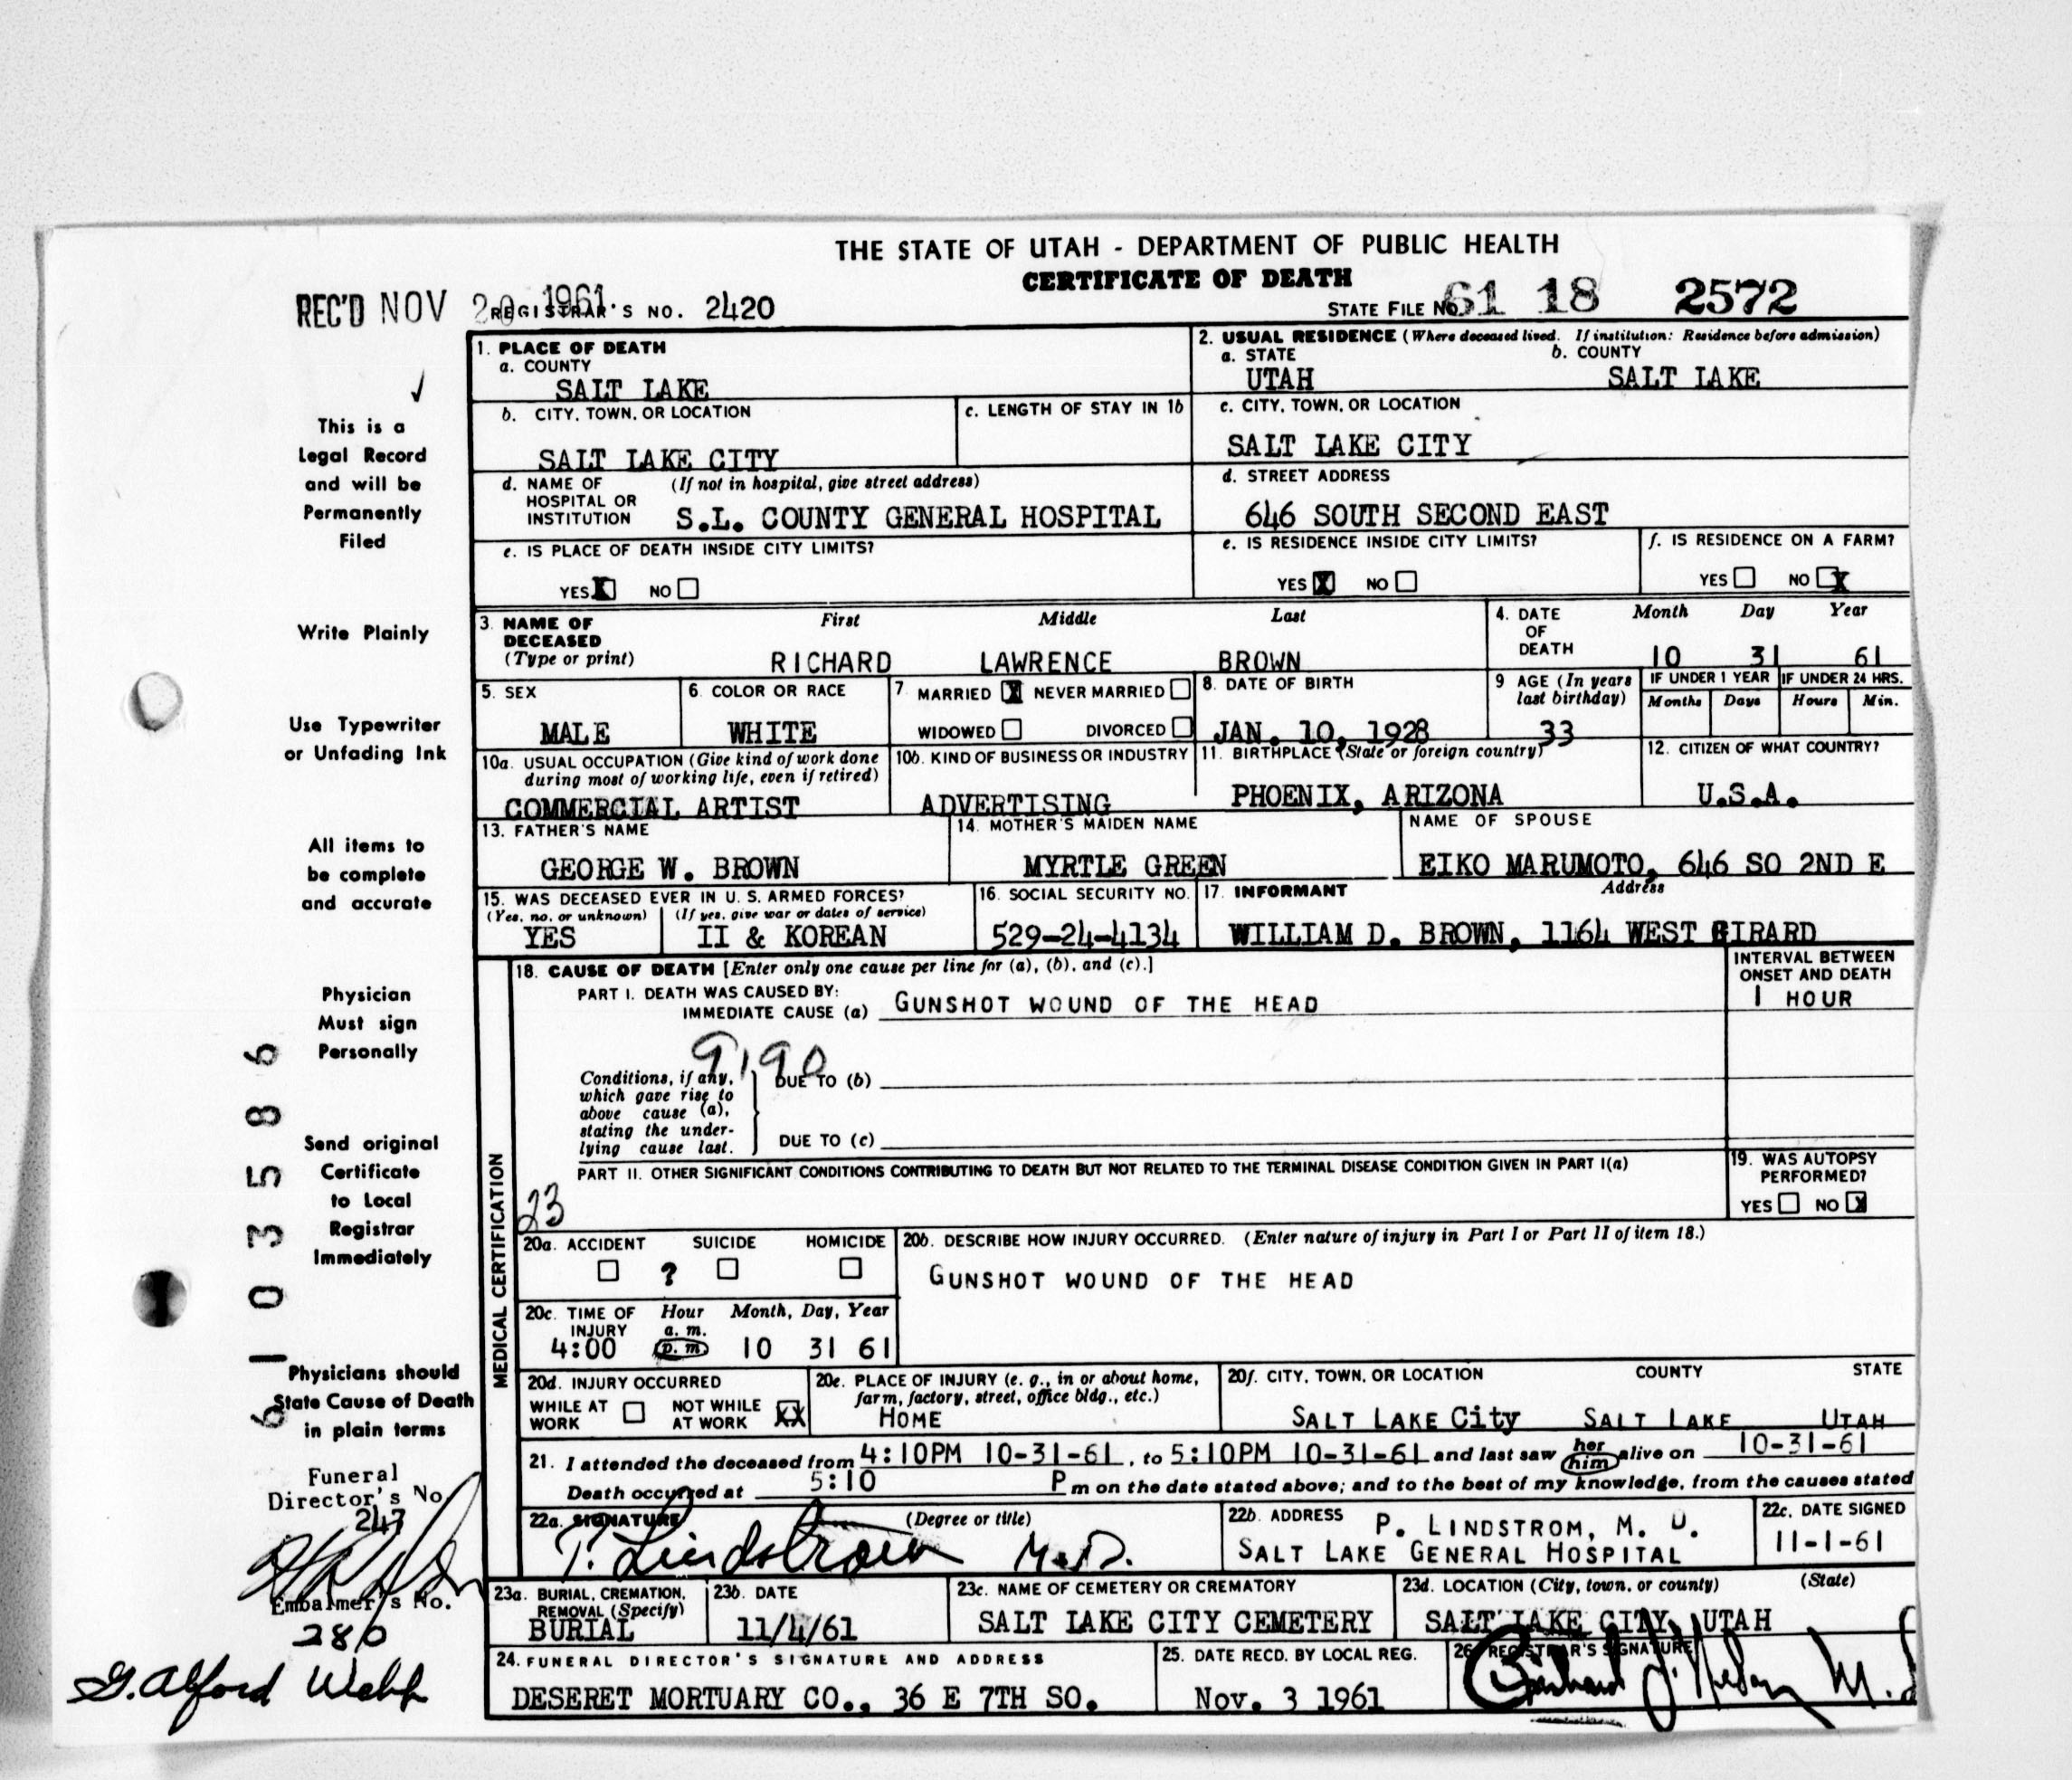 THE STATE OF UTAH - DEPARTMENT OF PUBLIC HEALTH
CERTIFICATE OF DEATH
REC'D NOV 20 1961. REGISTRAR'S NO. 2420 STATE FILE NO. 61 18 2572
1. PLACE OF DEATH
a. COUNTY
SALT LAKE
2. USUAL RESIDENCE (Where deceased lived. If institution: Residence before admission)
a. STATE b. COUNTY
UTAH SALT LAKE
b. CITY, TOWN, OR LOCATION c. LENGTH OF STAY IN 1b
SALT LAKE CITY
c. CITY, TOWN, OR LOCATION
SALT LAKE CITY
d. NAME OF (If not in hospital, give street address)
HOSPITAL OR
INSTITUTION S.L. COUNTY GENERAL HOSPITAL
d. STREET ADDRESS
646 SOUTH SECOND EAST
e. IS PLACE OF DEATH INSIDE CITY LIMITS?
YES X NO
e. IS RESIDENCE INSIDE CITY LIMITS?
YES X NO
f. IS RESIDENCE ON A FARM?
YES NO X
3. NAME OF First Middle Last
DECEASED
(Type or print) RICHARD LAWRENCE BROWN
4. DATE Month Day Year
OF
DEATH 10 31 61
5. SEX
MALE
6. COLOR OR RACE
WHITE
7. MARRIED X NEVER MARRIED
WIDOWED DIVORCED
8. DATE OF BIRTH
JAN. 10, 1928
9 AGE (In years
last birthday)
33
IF UNDER 1 YEAR IF UNDER 24 HRS.
Months Days Hours Min.
10a. USUAL OCCUPATION (Give kind of work done
during most of working life, even if retired)
COMMERCIAL ARTIST
10b. KIND OF BUSINESS OR INDUSTRY
ADVERTISING
11. BIRTHPLACE (State or foreign country)
PHOENIX, ARIZONA
12. CITIZEN OF WHAT COUNTRY?
U.S.A.
13. FATHER'S NAME
GEORGE W. BROWN
14. MOTHER'S MAIDEN NAME
MYRTLE GREEN
NAME OF SPOUSE
EIKO MARUMOTO, 646 SO 2ND E
15. WAS DECEASED EVER IN U. S. ARMED FORCES?
(Yes, no. or unknown) (If yes, give war or dates of service)
YES II & KOREAN
16. SOCIAL SECURITY NO.
529-24-4134
17. INFORMANT Address
WILLIAM D. BROWN, 1164 WEST GIRARD
MEDICAL CERTIFICATION
18. CAUSE OF DEATH [Enter only one cause per line for (a), (b), and (c).]
PART I. DEATH WAS CAUSED BY:
IMMEDIATE CAUSE (a) GUNSHOT WOUND OF THE HEAD
INTERVAL BETWEEN
ONSET AND DEATH
1 HOUR
9190
Conditions, if any, DUE TO (b)
which gave rise to
above cause (a),
stating the under-
lying cause last. DUE TO (c)
PART II. OTHER SIGNIFICANT CONDITIONS CONTRIBUTING TO DEATH BUT NOT RELATED TO THE TERMINAL DISEASE CONDITION GIVEN IN PART I(a)
23
19. WAS AUTOPSY
PERFORMED?
YES NO X
20a. ACCIDENT SUICIDE HOMICIDE
?
20b. DESCRIBE HOW INJURY OCCURRED. (Enter nature of injury in Part I or Part II of item 18.)
GUNSHOT WOUND OF THE HEAD
20c. TIME OF Hour Month, Day, Year
INJURY a. m.
4:00 p. m 10 31 61
20d. INJURY OCCURRED
WHILE AT NOT WHILE
WORK AT WORK XX
20e. PLACE OF INJURY (e. g., in or about home,
farm, factory, street, office bldg., etc.)
HOME
20f. CITY, TOWN, OR LOCATION COUNTY STATE
SALT LAKE City SALT LAKE UTAH
21. I attended the deceased from 4:10PM 10-31-61, to 5:10PM 10-31-61 and last saw her him alive on 10-31-61
Death occurred at 5:10 P m on the date stated above; and to the best of my knowledge, from the causes stated
22a. SIGNATURE (Degree or title)
P. Lindstrom M.D.
22b. ADDRESS P. LINDSTROM, M. D.
SALT LAKE GENERAL HOSPITAL
22c. DATE SIGNED
11-1-61
23a. BURIAL, CREMATION,
REMOVAL (Specify)
BURIAL
23b. DATE
11/4/61
23c. NAME OF CEMETERY OR CREMATORY
SALT LAKE CITY CEMETERY
23d. LOCATION (City, town, or county) (State)
SALT LAKE CITY, UTAH
24. FUNERAL DIRECTOR'S SIGNATURE AND ADDRESS
DESERET MORTUARY CO., 36 E 7TH SO.
25. DATE RECD. BY LOCAL REG.
Nov. 3 1961
26. REGISTRAR'S SIGNATURE
This is a
Legal Record
and will be
Permanently
Filed
Write Plainly
Use Typewriter
or Unfading Ink
All items to
be complete
and accurate
Physician
Must sign
Personally
Send original
Certificate
to Local
Registrar
Immediately
Physicians should
State Cause of Death
in plain terms
6103586
Funeral
Director's No.
247
Embalmer's No.
280
G. Alford Webb